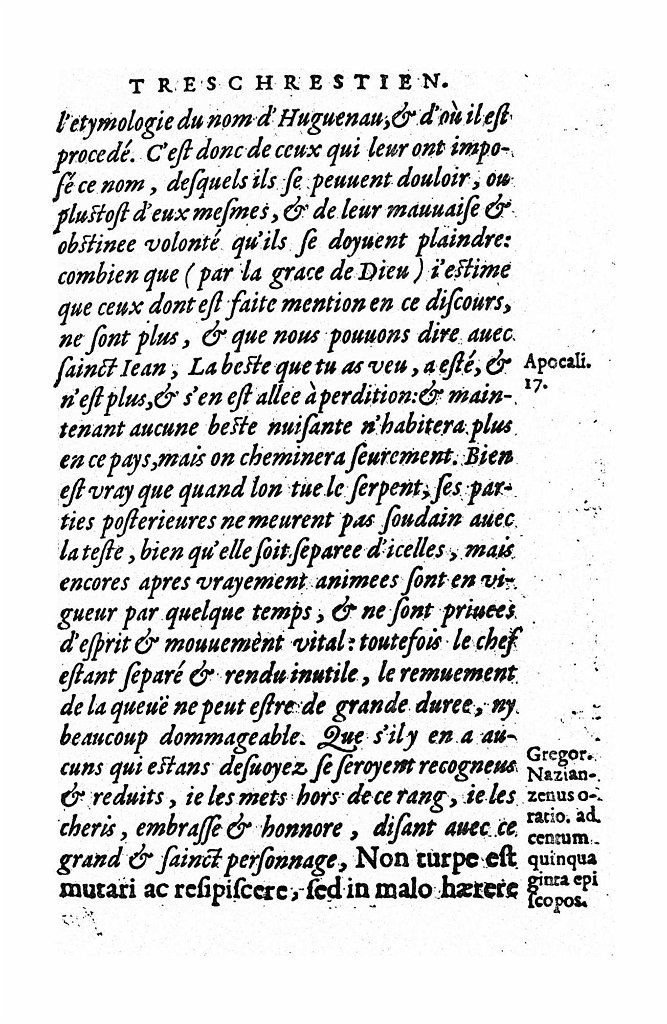 TRESCHRESTIEN.
l'etymologie du nom d'Huguenau, & d'où il est
procedé. C'est donc de ceux qui leur ont impo-
sé ce nom, desquels ils se peuuent douloir, ou
plustost d'eux mesmes, & de leur mauuaise &
obstinee volonté qu'ils se doyuent plaindre:
combien que (par la grace de Dieu) i'estime
que ceux dont est faite mention en ce discours,
ne sont plus, & que nous pouuons dire auec
sainct Iean, La beste que tu as veu, a esté, &
n'est plus, & s'en est allee à perdition: & main-
tenant aucune beste nuisante n'habitera plus
en ce pays, mais on cheminera seurement. Bien
est vray que quand lon tue le serpent, ses par-
ties posterieures ne meurent pas soudain auec
la teste, bien qu'elle soit separee d'icelles, mais
encores apres vrayement animees sont en vi-
gueur par quelque temps, & ne sont priuees
d'esprit & mouuement vital: toutefois le chef
estant separé & rendu inutile, le remuement
de la queuë ne peut estre de grande duree, ny
beaucoup dommageable. Que s'il y en a au-
cuns qui estans desuoyez se seroyent recogneus
& reduits, ie les mets hors de ce rang, ie les
cheris, embrasse & honnore, disant auec ce
grand & sainct personnage, Non turpe est
mutari ac resipiscere, sed in malo hærere
Apocali.
17.
Gregor.
Nazian-
zenus o-
ratio. ad
centum
quinqua
ginta epi
scopos.